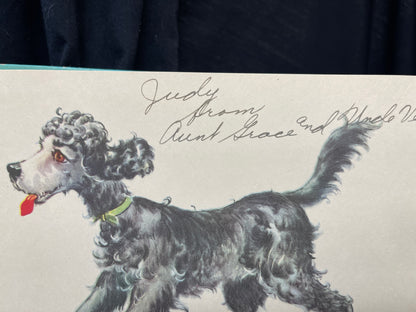 Judy
from
Aunt Grace and Uncle